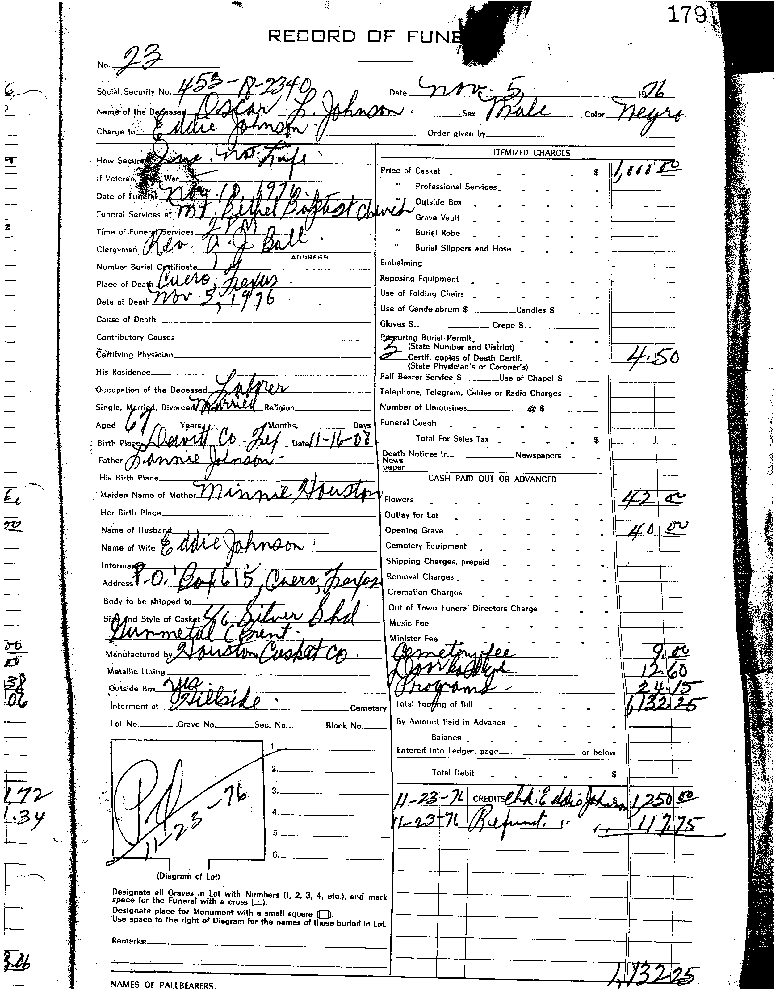 179
RECORD OF FUNE
No. 23
Social Security No. 453-18-2340 Date Nov. 5 1976
Name of the Deceased Oscar L. Johnson Sex Male Color Negro
Charge to Eddie Johnson Order given by
How Secured
If Veteran, War
Date of Funeral Nov 18, 1976
Funeral Services at Mt. Bethel Baptist Church
Time of Funeral Services 2 PM
Clergyman Rev. A. J. Ball
ADDRESS
Number Burial Certificate
Place of Death Cuero, Texas
Date of Death Nov 5, 1976
Cause of Death
Contributory Causes
Certifying Physician
His Residence
Occupation of the Deceased Laborer
Single, Married, Divorced Married Religion
Aged 67 Years Months Days
Birth Place Dewitt Co. Tex Date 11-16-08
Father Lonnie Johnson
His Birth Place
Maiden Name of Mother Minnie Houston
Her Birth Place
Name of Husband
Name of Wife Eddie Johnson
Informant
Address P.O. Box 615, Cuero, Texas
Body to be shipped to
Size and Style of Casket 6/6 Silver Shd
Gunmetal
Manufactured by Houston Casket Co
Metallic Lining
Outside Box
Interment at Hillside Cemetery
Lot No. Grave No. Sec. No. Block No.
1
2
3
4
5
6
Pd
11-23-76
(Diagram of Lot)
Designate all Graves in Lot with Numbers (1, 2, 3, 4, etc.), and mark
space for the Funeral with a cross
Designate place for Monument with a small square
Use space to the right of Diagram for the names of those buried in Lot.
Remarks:
NAMES OF PALLBEARERS.
ITEMIZED CHARGES
Price of Casket $ 1,000 00
" Professional Services
" Outside Box
" Grave Vault
" Burial Robe
" Burial Slippers and Hose
Embalming
Reposing Equipment
Use of Folding Chairs
Use of Candelabrum $ Candles $
Gloves $ Crepe $
Procuring Burial Permit
(State Number and District)
3 Certif. copies of Death Certif. 4.50
(State Physician's or Coroner's)
Pall Bearer Service $ Use of Chapel $
Telephone, Telegram, Cables or Radio Charges
Number of Limousines @ $
Funeral Coach
Total For Sales Tax $
Death Notices in Newspapers
News
paper
CASH PAID OUT OR ADVANCED
Flowers 42 00
Outlay for Lot
Opening Grave 40 00
Cemetery Equipment
Shipping Charges, prepaid
Removal Charges
Cremation Charges
Out of Town Funeral Directors Charge
Music Fee
Minister Fee
Cemetery fee 9.00
12.60
Programs 24.15
Total footing of bill 1,132.25
By Amount Paid in Advance
Balance
Entered into Ledger, page or below
Total Debit $
11-23-76 CREDITS Chk. Eddie Johnson 1,250 00
11-23-76 Refund 117.75
1,132.25